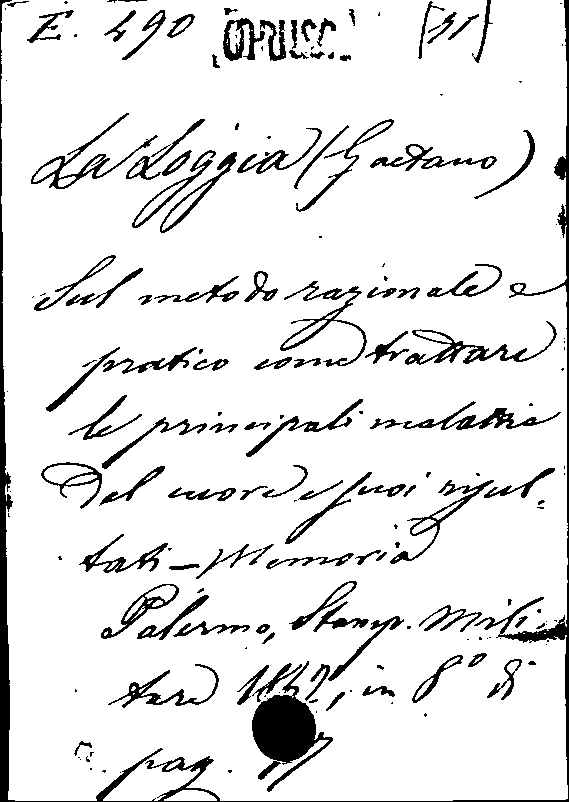 E. 490 OPUSC. [31]
La Loggia (Gaetano)
Sul metodo razionale e
pratico come trattare
le principali malattie
del cuore e suoi risul-
tati - Memoria
Palermo, Stamp. Mili-
tare 1842, in 8° di
pag.